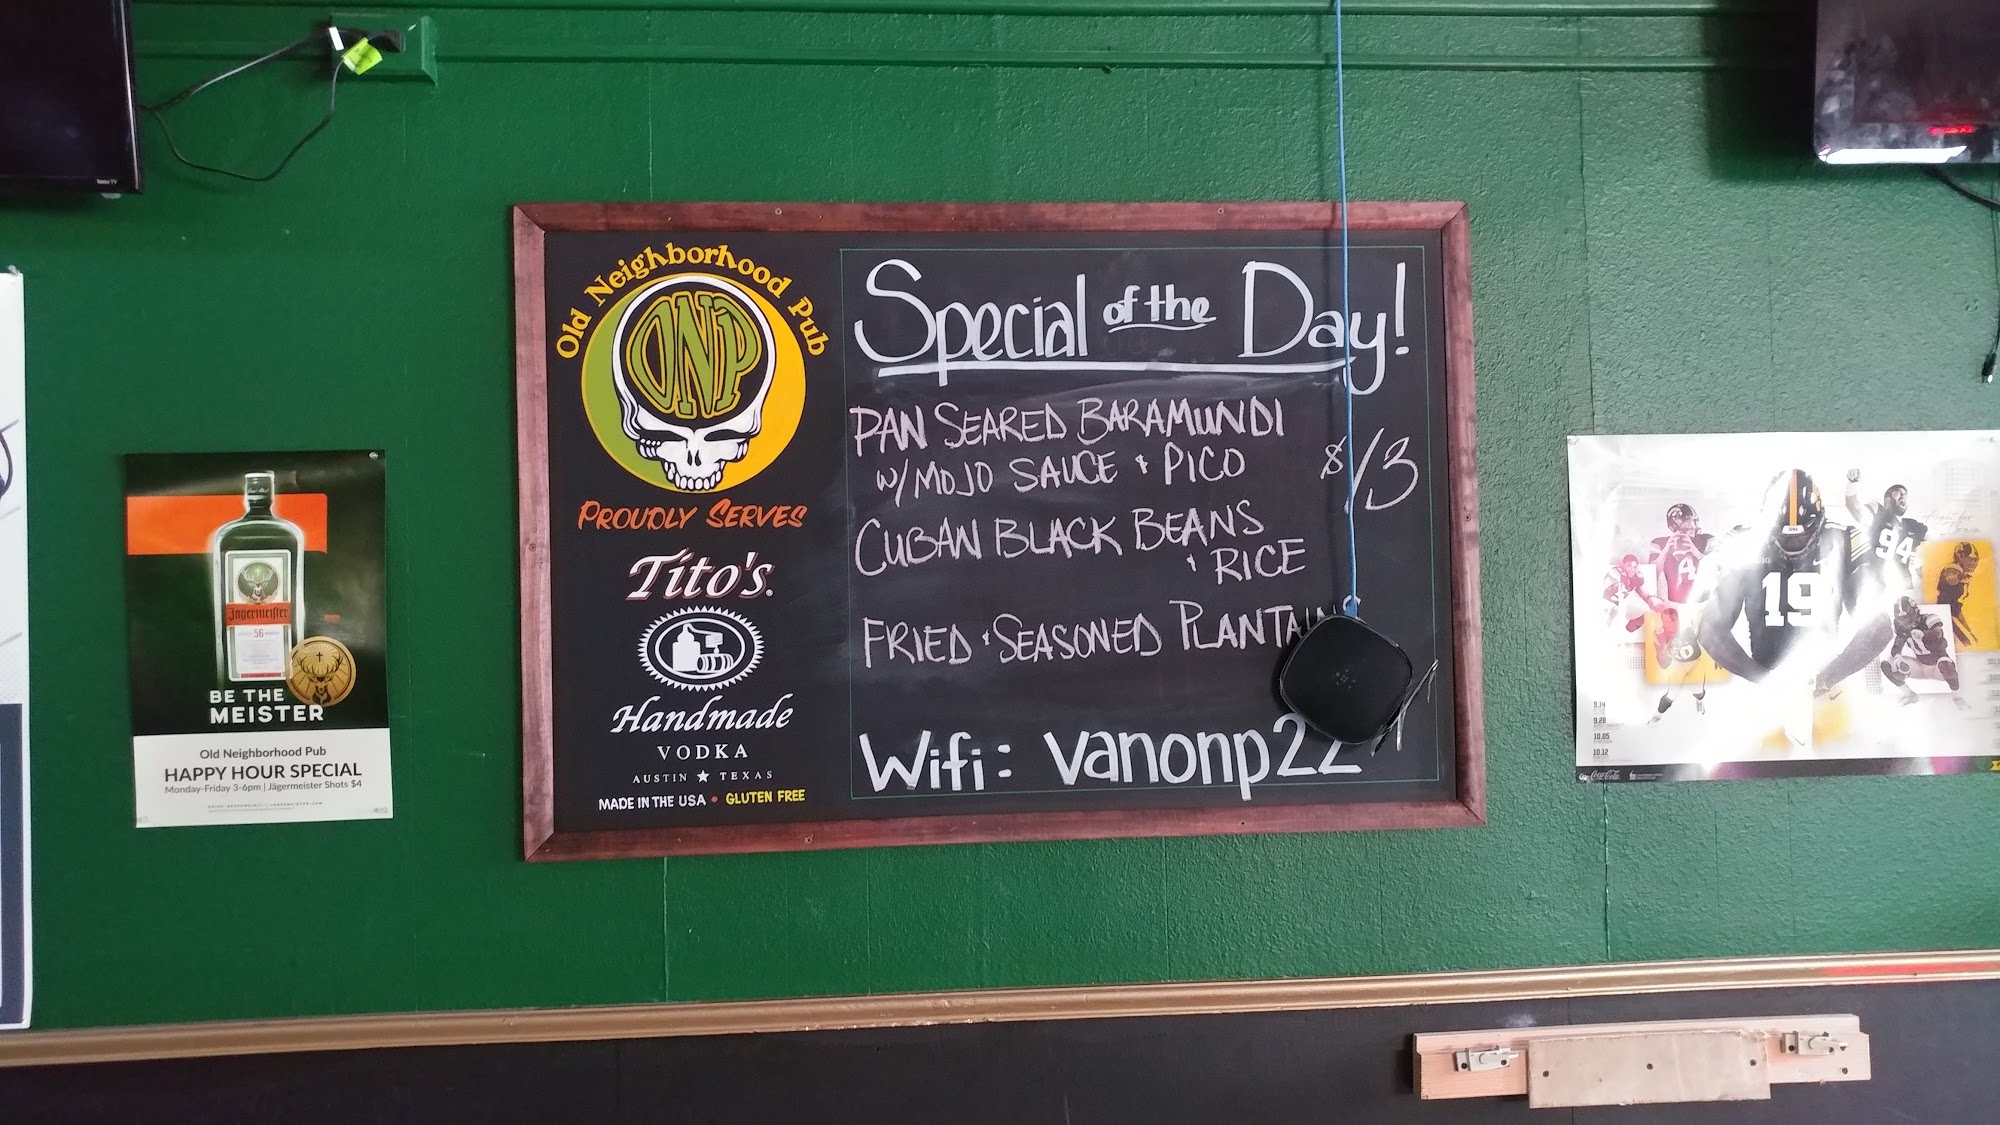 Roku TV
Old Neighborhood Pub
ONP
PROUDLY SERVES
Tito's
Handmade
VODKA
AUSTIN ★ TEXAS
MADE IN THE USA • GLUTEN FREE
Special of the Day!
PAN SEARED BARAMUNDI
W/ MOJO SAUCE & PICO $13
CUBAN BLACK BEANS
& RICE
FRIED & SEASONED
Wifi: vanonp22
Jägermeister
56
BE THE
MEISTER
Old Neighborhood Pub
HAPPY HOUR SPECIAL
Monday-Friday 3-6pm | Jägermeister Shots $4
19
94
4
9.14
9.20
10.05
10.12
Coca-Cola